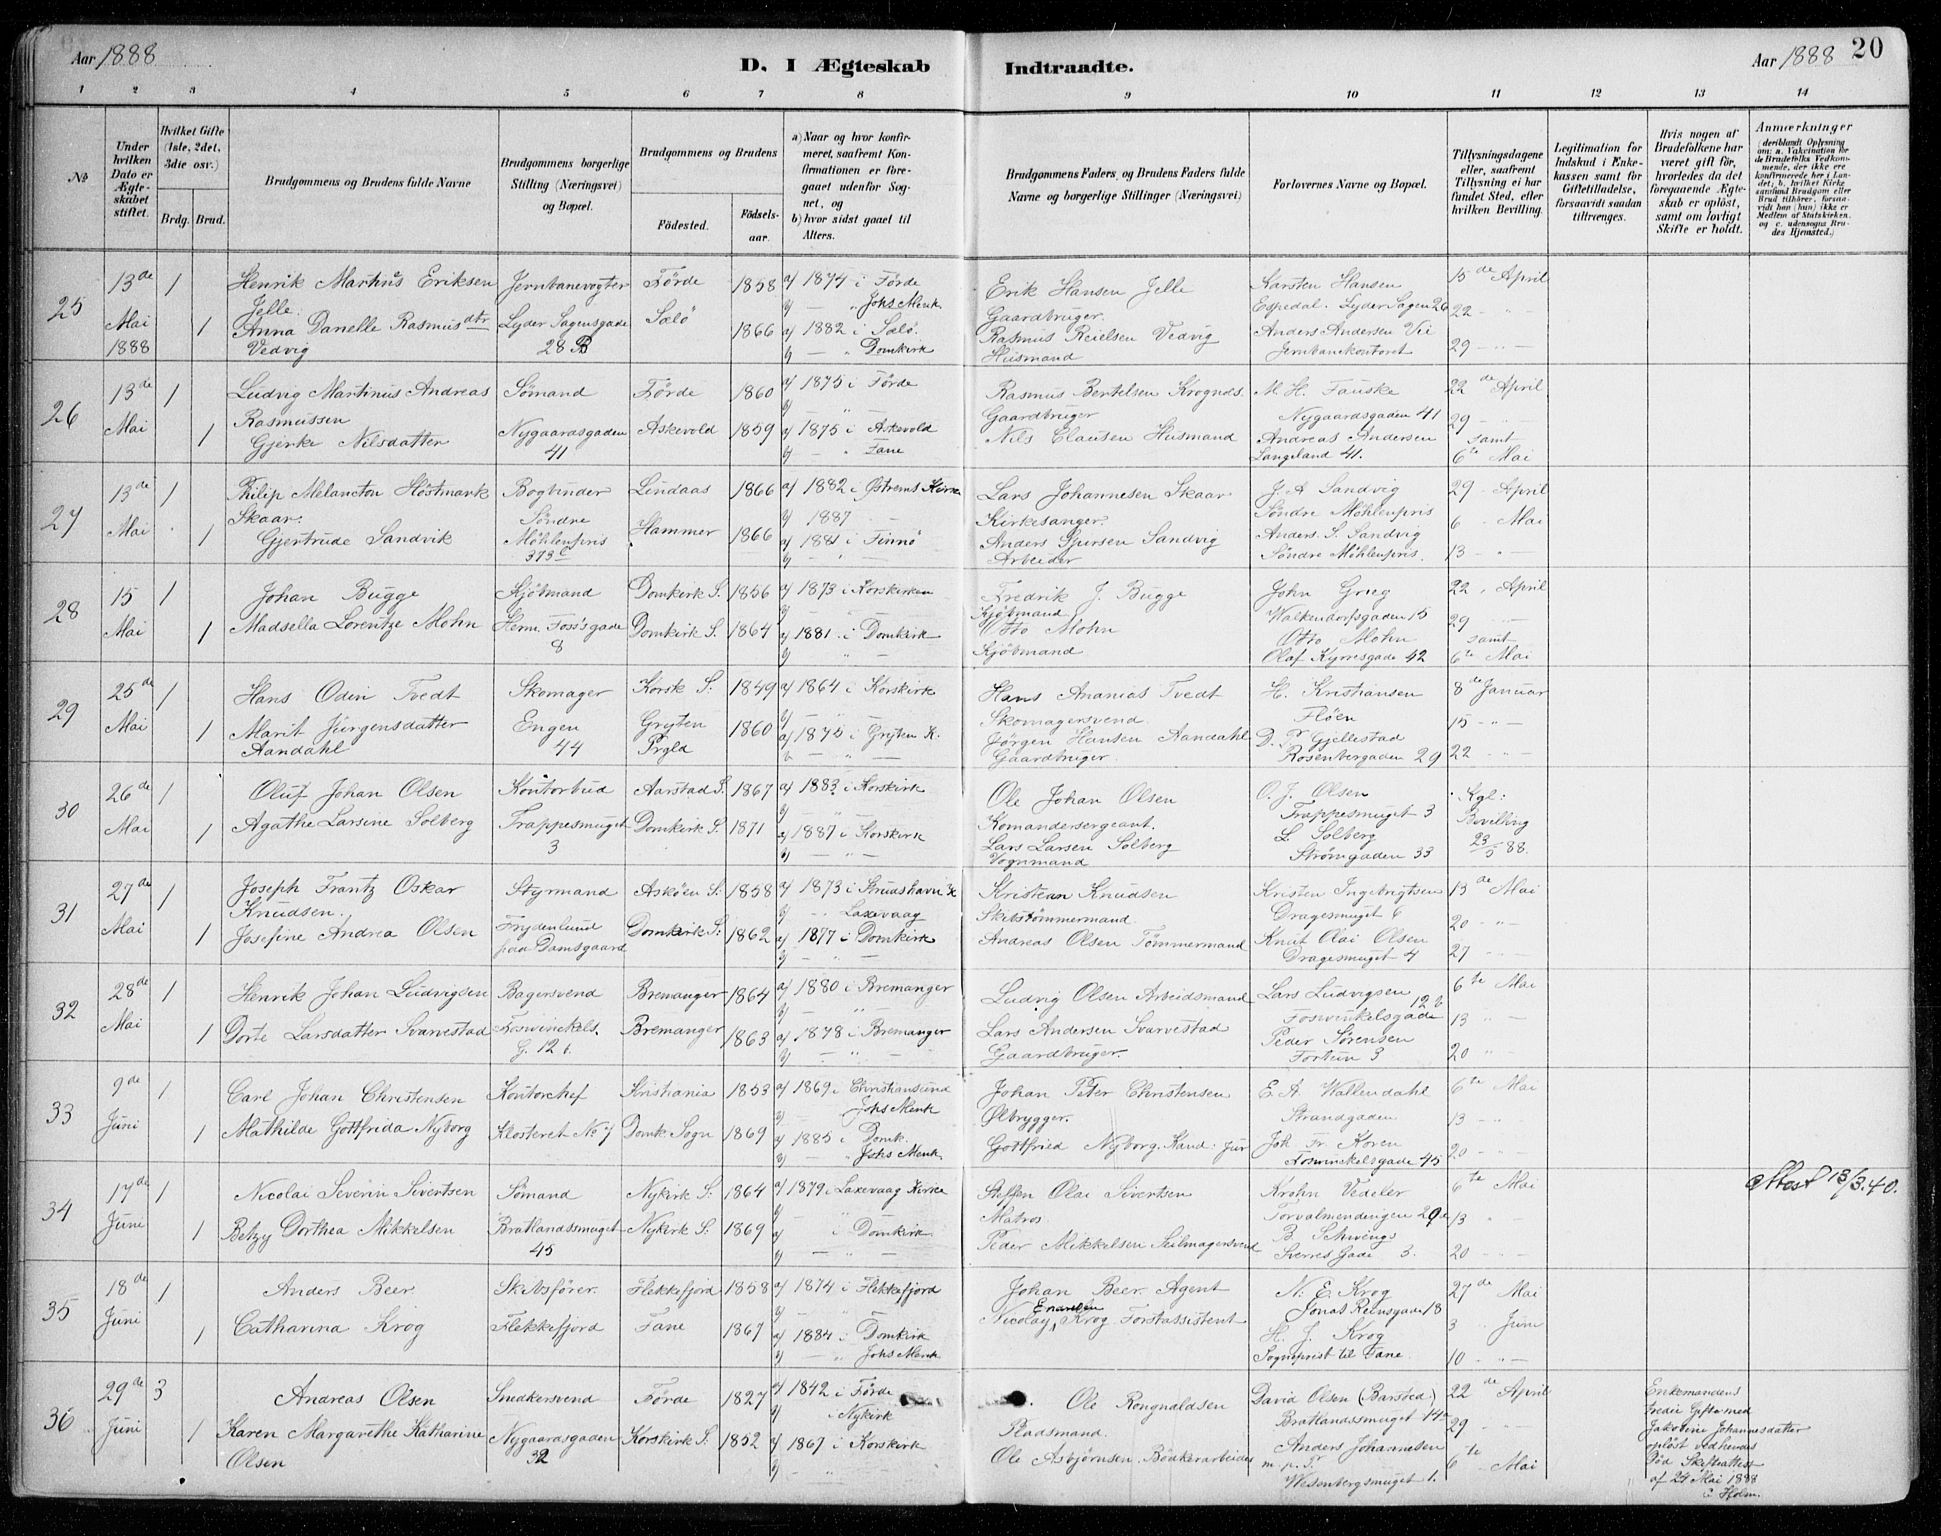 Aar 1888
D. I Ægteskab Indtraadte.
Aar 1888 20
1 2 3 4 5 6 7 8 9 10 11 12 13 14
№
Under hvilken Dato er Ægteskabet stiftet.
Hvilket Gifte (1ste, 2det, 3die osv.)
Brdg. Brud.
Brudgommens og Brudens fulde Navne
Brudgommens borgerlige Stilling (Næringsvei) og Bopæl.
Brudgommens og Brudens
Fødested.
Fødselsaar.
a) Naar og hvor konfirmeret, saafremt Konfirmationen er foregaaet udenfor Sognet, og
b) hvor sidst gaaet til Alters.
Brudgommens Faders og Brudens Faders fulde Navne og borgerlige Stillinger (Næringsvei)
Forlovernes Navne og Bopæl.
Tillysningsdagene eller, saafremt Tillysning ei har fundet Sted, efter hvilken Bevilling.
Legitimation for Indskud i Enkekassen samt for Giftetilladelse, forsaavidt saadan tiltrænges.
Hvis nogen af Brudefolkene har været gift før, hvorledes da det foregaaende Ægteskab er opløst, samt om lovligt Skifte er holdt.
Anmærkninger (deriblandt Oplysning om: a. Vakcination for de Brudefolks Vedkommende, der ikke ere konfirmerede her i Landet; b. hvilket Kirkesamfund Brudgom eller Brud tilhører, forsaavidt han (hun) ikke er Medlem af Statskirken, og c. udensogns Brudes Hjemsted.)
25 13de Mai 1888 1 1
Henrik Martius Eriksen Jelle.
Anna Danelle Rasmusdtr Vedvig
Jernbanevogter Lyder Sagensgade 28 B
Førde 1858 a) 1874 i Førde b) — " Johs Menk
Sælø 1866 a) 1882 i Sælø. b) — " Domkirk
Erik Hansen Jelle Gaardbruger.
Rasmus Reielsen Vedvig Husmand
Karsten Hansen Espedal. Lyder Sagen 26
Anders Andersen Vii Jernbanekontoret
15de April 22 " 29 "
26 13de Mai 1 1
Ludvig Martinus Andreas Rasmussen
Gjerke Nilsdatter
Sømand Nygaardsgaden 41
Førde 1860 a) 1875 i Førde b) "
Askevold 1859 a) 1875 i Askevold b) — " Fane
Rasmus Bertelsen Krognds. Gaardbruger
Nils Clausen Husmand
M. H. Fauske Nygaardsgaden 41
Andreas Andersen Langeland 41.
22de April 29 samt 6te Mai
27 13de Mai 1 1
Philip Melancton Høstmark Skaar.
Gjertrude Sandvik
Bogbinder Søndre Møhlenpris 373 c
Lindaas 1866 a) 1882 i Østrems Kirke b) 1887
Hammer 1866 a) 1881 i Finnø b) "
Lars Johannesen Skaar Kirkesanger.
Anders Sjursen Sandvig Arbeider
J. A Sandvig Søndre Møhlenpris
Anders. S. Sandvig Søndre Møhlenpris
29 - April 6 - Mai 13 - " -
28 15 Mai 1 1
Johan Bugge
Madsella Lorentze Mohn
Kjøbmand Herm. Foss'sgade 8
Domkirk S. 1856 a) 1873 i Korskirken b) "
Domkirk S. 1864 a) 1881. i Domkirk b) "
Fredrik J. Bugge Kjøbmand
Otto Mohn Kjøbmand
John Grieg Walkendorfsgaden 15
Otto Mohn Olaf Kyrresgade 42
22 " April 29 samt 6te Mai
29 25de Mai 1 1
Hans Oden Tvedt
Marit Jürgensdatter Aandahl
Skomager Engen 44
Korsk S: 1849 a) 1864 i Korskirk b) —
Gryten Prgld 1860 a) 1875 i Gryten K. b — " —
Hans Ananias Tvedt Skomagersvend.
Jørgen Hansen Aandahl Gaardbruger.
H. Kristiansen Fløen
D. P Gjellestad Rosenbergaden 29
8de Januar 15 - " - 22 " -
30 26de Mai 1 1
Oluf Johan Olsen
Agathe Larsine Solberg
Kontorbud Trappesmuget 3
Aarstad S. 1867 a) 1883 i Korskirk b) — " —
Domkirk S. 1871 a) 1887 i Korskirk b) — " —
Ole Johan Olsen Komandersergeant.
Lars Larsen Solberg Vognmand
O. J. Olsen Trappesmuget 3
L Solberg Strømgaden 33
Kgl: Bevilling 23/5 88.
31 27de Mai 1 1
Joseph Frantz Oskar Knudsen.
Josefine Andrea Olsen
Styrmand Frydenlund paa Damsgaard
Askøen S. 1858 a) 1873 i Strudshavn K b) " Laxevaag
Domkirk S: 1862 a) 1877 i Domkirk b) — " —
Kristian Knudsen Skibstømmermand.
Andreas Olsen Tømmermand
Kristen Ingebrigtsen Dragesmuget 6
Knut Olai Olsen Dragesmuget 4
13de Mai 20 " 27 "
32 28de Mai 1 1
Henrik Johan Ludvigsen
Dorte Larsdatter Svarvestad
Bagersvend Foswinckels. G. 12 b.
Bremanger 1864 a) 1880 i Bremanger b) — "
Bremanger 1863 a) 1878 i Bremanger b) — " —
Ludvig Olsen Arbeidsmand
Lars Andersen Svarvestad Gaardbruger.
Lars Ludvigsen 12 b Foswinkelsgade
Peder Sørensen Fortun 3
6te Mai 13 " 20 "
33 9de Juni 1 1
Carl Johan Christensen
Mathilde Gottfrida Nyborg
Kontorchef Klosteret No 7
Kristiania 1853 a) 1869 i Christiansund b) — Johs Menk
Domk Sogn 1869 a) 1885 i Domk. b) — " Johs Menk
Johan Peter Christensen Ølbrygger.
Gottfried Nyborg. Kand. Jur
E. A. Wallendahl Strandgaden
Joh Fr. Koren Foswinckelsgade 45
6te Mai 13 " 20 "
34 17de Juni 1 1
Nicolai Severin Sivertsen
Betzy Dorthea Mikkelsen
Sømand Bratlandssmuget 45
Nykirk S: 1864 a) 1879 i Laxevaag Kirke b) — "
Nykirk S: 1869 a) " i Domkirk b) — " —
Steffen Olai Sivertsen Matros
Peder Mikkelsen Seilmagersvend
Krohn Vedeler Torvalmendingen 29a
B Schwings Sverres Gade 3.
6te Mai 13 " 20 "
Attest 13/3.40.
35 18de Juni 1 1
Anders Beer
Catharina Krog
Skibsfører. Flekkefjord
Flekkefjord 1858 a) 1874 i Flekkefjord b) — " —
Fane 1867 a) 1884 i Domkirk b) — " Johs Menk
Johan Beer Agent
Nicolay Enansen Krog Forstassistent
N. E. Krog Jonas Reinsgade 18
H. J. Krog Sognepræst til Fane.
27de Mai 3 " Juni 10 - " -
36 29de Juni 3 1
Andreas Olsen
Karen Margarethe Katharine Olsen
Snedkersvend Nygaardsgaden 32
Førde 1827 a) 1842 i Førde b) " i Nykirk
Korskirk S. 1852 a) 1867 i Korskirk b) — " —
Ole Rongnaldsen Pladsmand.
Ole Asbjørnsen. Bødkerarbeider
David Olsen (Barsted.) Bratlandssmuget 14a
Anders Johannesen m. p. Sr Wesenbergsmuget 1.
22de April 29 " 6te Mai
Enkemandens tredie Gifte med Jakobine Johannesdatter opløst ved hendes Død Skifteattest af 24 Mai 1888 C Holm.